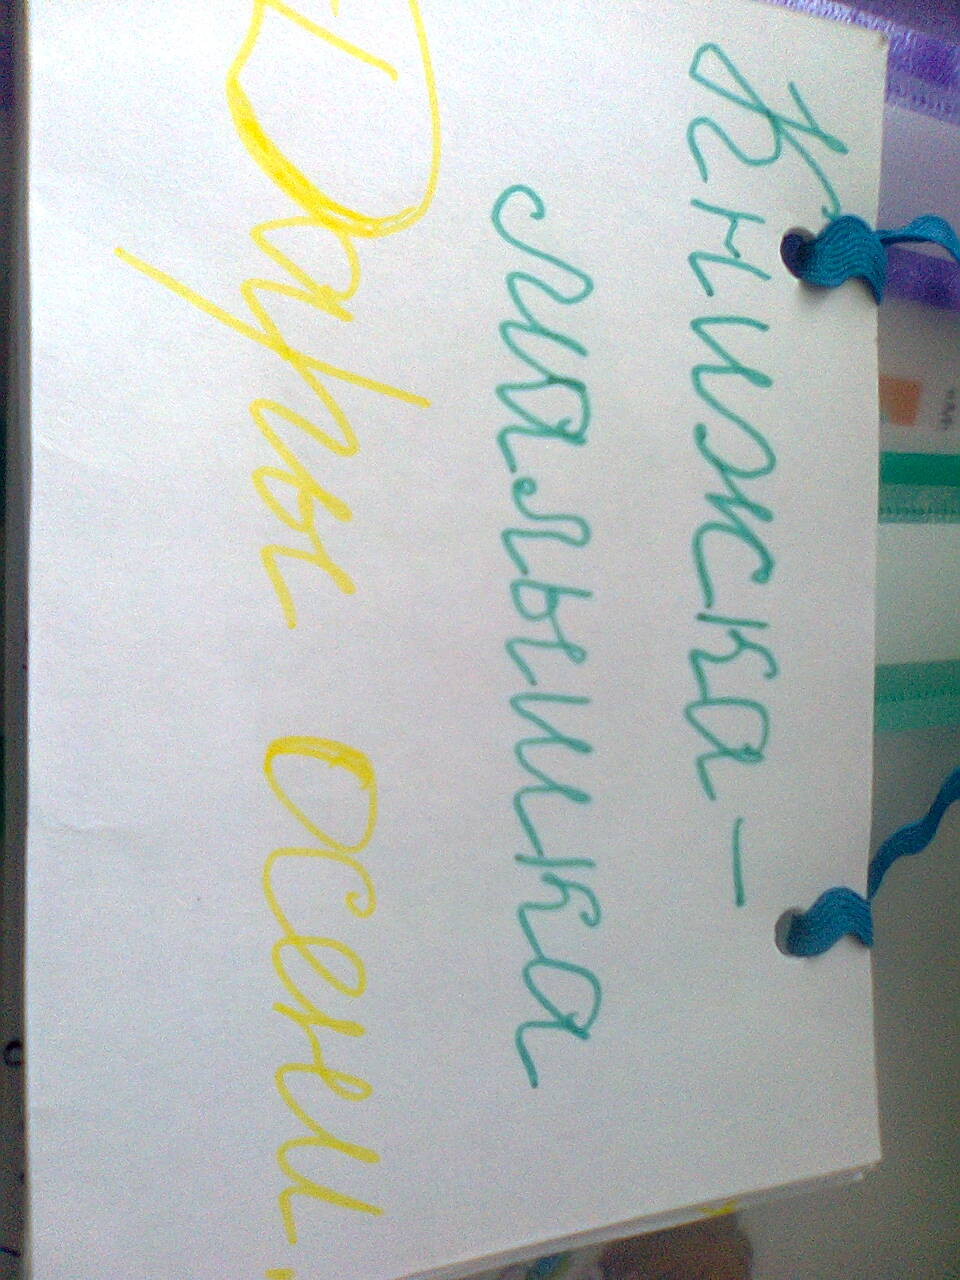 Книжка-
малышка
Дары осени.